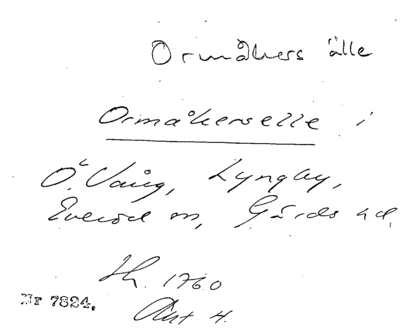 Ormåkers älle
Ormåkerselle i
Ö. Vång, Lyngby,
Everöd sn, Gärds hd.
Sk. 1760
Akt 4.
Nr 7824.